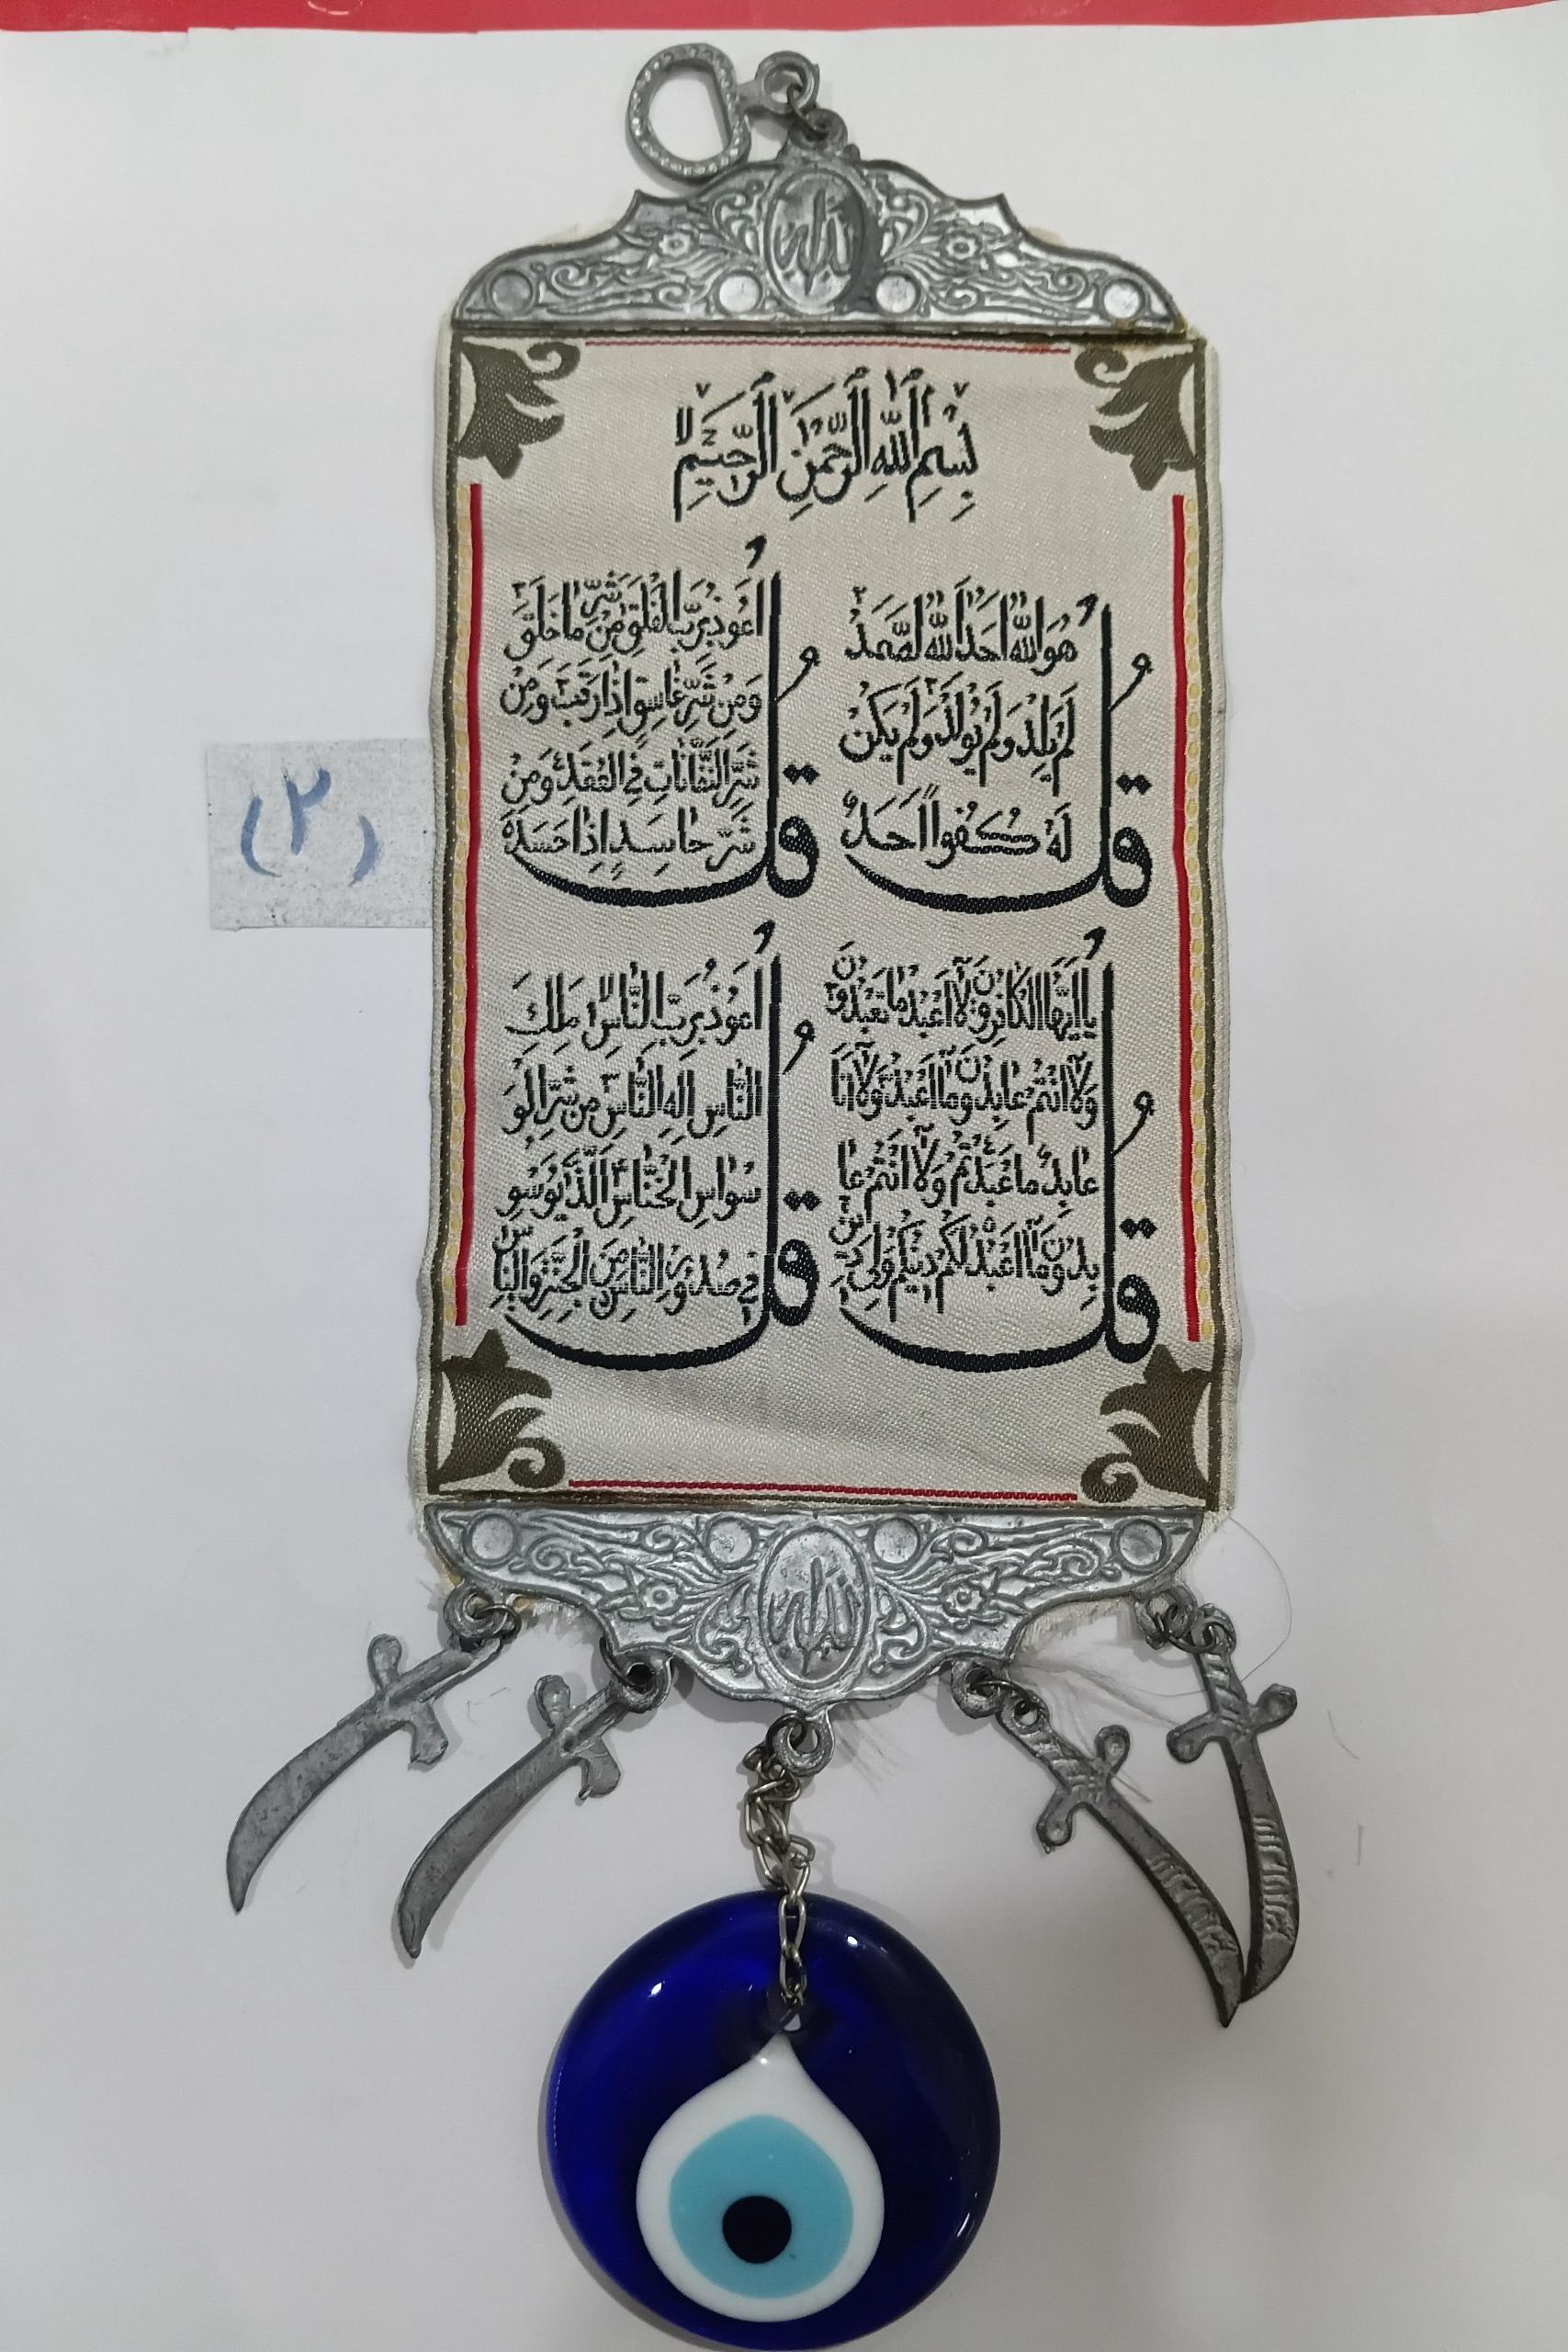 الله
بِسْمِ اللّٰهِ الرَّحْمٰنِ الرَّحِيْمِ
قُلْ
هُوَ اللّٰهُ اَحَدٌ اَللّٰهُ الصَّمَدُ
لَمْ يَلِدْ وَلَمْ يُولَدْ وَلَمْ يَكُنْ
لَهُ كُفُواً اَحَدٌ
قُلْ
اَعُوذُ بِرَبِّ الْفَلَقِ مِنْ شَرِّ مَا خَلَقَ
وَمِنْ شَرِّ غَاسِقٍ اِذَا وَقَبَ وَمِنْ
شَرِّ النَّفَّاثَاتِ فِي الْعُقَدِ وَمِنْ
شَرِّ حَاسِدٍ اِذَا حَسَدَ
قُلْ
يَا اَيُّهَا الْكَافِرُونَ لَا اَعْبُدُ مَا تَعْبُدُونَ
وَلَا اَنْتُمْ عَابِدُونَ مَا اَعْبُدُ وَلَا اَنَا
عَابِدٌ مَا عَبَدْتُمْ وَلَا اَنْتُمْ عَا
بِدُونَ مَا اَعْبُدُ لَكُمْ دِينُكُمْ وَلِيَ دِينِ
قُلْ
اَعُوذُ بِرَبِّ النَّاسِ مَلِكِ
النَّاسِ اِلٰهِ النَّاسِ مِنْ شَرِّ الْوَ
سْوَاسِ الْخَنَّاسِ الَّذِي يُوَسْوِ
سُ فِي صُدُورِ النَّاسِ مِنَ الْجِنَّةِ وَالنَّاسِ
(٢)
الله